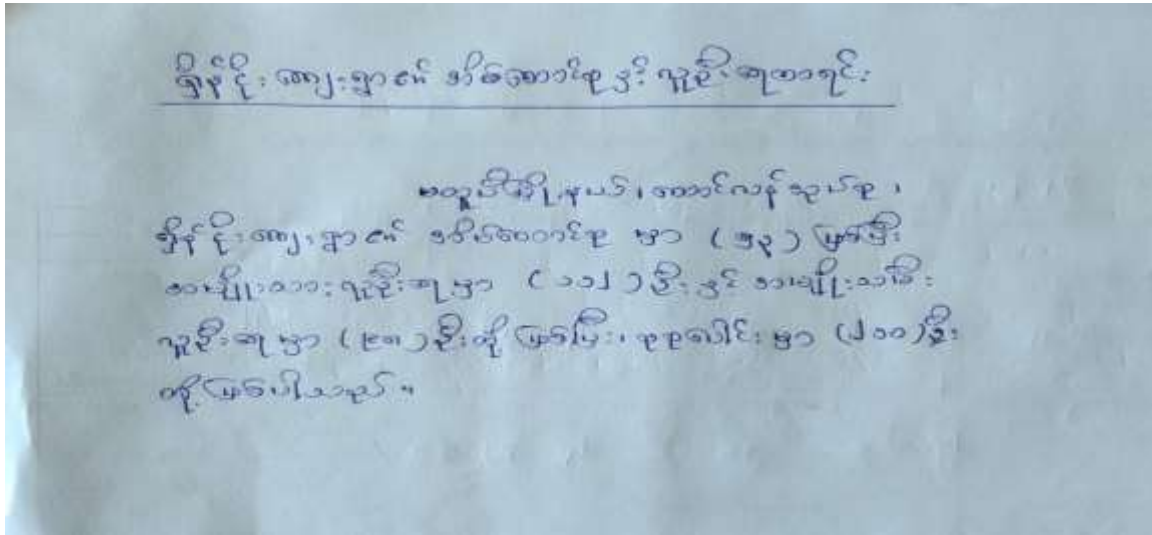 ရှိန်ငိုးကျေးရွာ၏ အိမ်ထောင်စုနှင့် လူဦးရေစာရင်း
မတူပီမြို့နယ်၊ တောင်လန်သွယ်စု၊
ရှိန်ငိုးကျေးရွာ၏ အိမ်ထောင်စု မှာ (၅၃) ဖြစ်ပြီး
အမျိုးသားလူဦးရေမှာ (၁၁၂) ဦးနှင့် အမျိုးသမီး
လူဦးရေမှာ (၉၈) ဦးတို့ဖြစ်ပြီး၊ စုစုပေါင်းမှာ (၂၁၀) ဦး
တို့ဖြစ်ပါသည်။